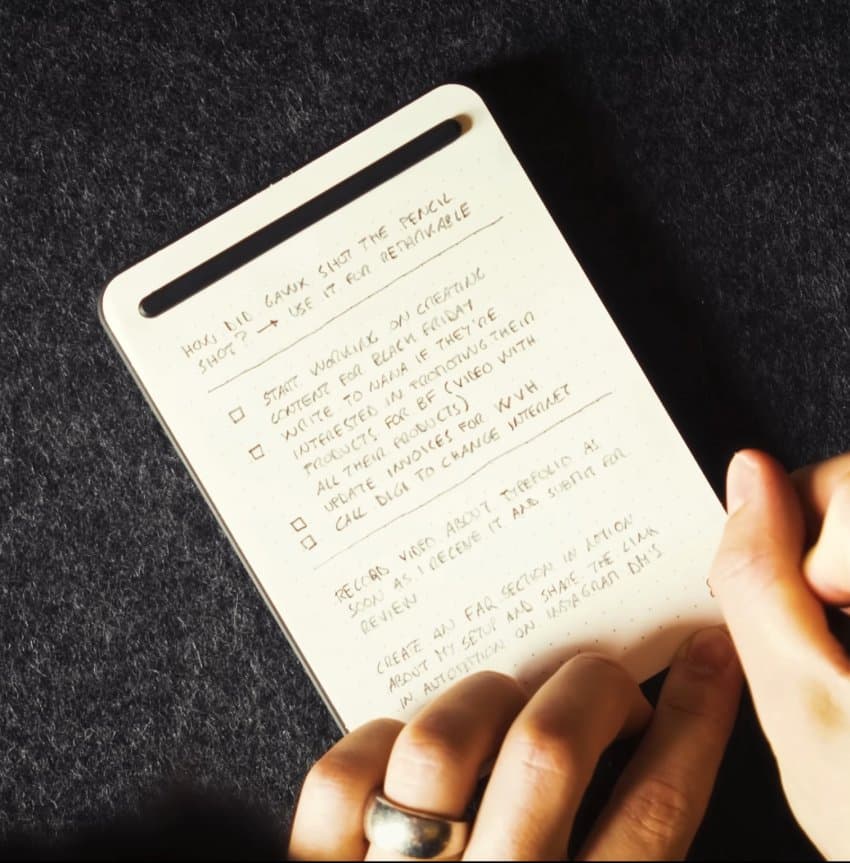 HOW DID GAWX SHOT THE PENCIL
SHOT? → USE IT FOR REMARKABLE
START WORKING ON CREATING
CONTENT FOR BLACK FRIDAY
WRITE TO NANA IF THEY'RE
INTERESTED IN PROMOTING THEIR
PRODUCTS FOR BF (VIDEO WITH
ALL THEIR PRODUCTS)
UPDATE INVOICES FOR WVH
CALL DIGI TO CHANGE INTERNET
RECORD VIDEO ABOUT TYPEFOLIO AS
SOON AS I RECEIVE IT AND SUBMIT FOR
REVIEW
CREATE AN FAQ SECTION IN NOTION
ABOUT MY SETUP AND SHARE THE LINK
IN AUTOMATION ON INSTAGRAM DM'S